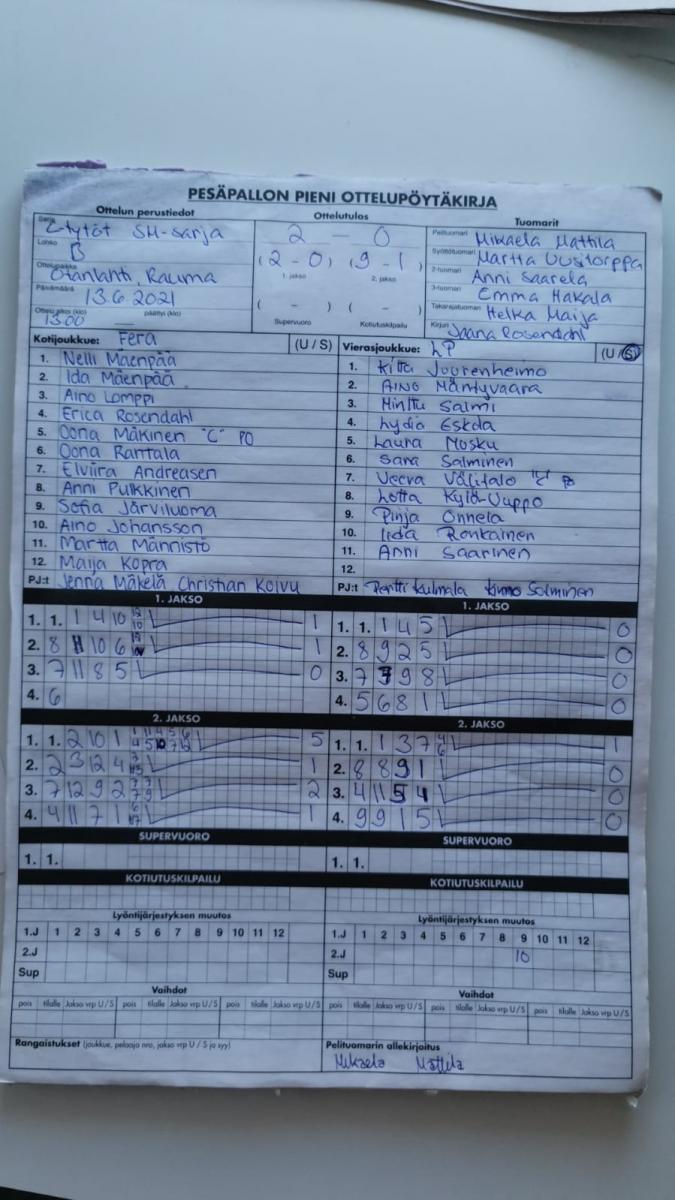 PESÄPALLON PIENI OTTELUPÖYTÄKIRJA
Ottelun perustiedot
Sarja C-tytöt SM-sarja
Lohko B
Ottelupaikka Otanlahti, Rauma
Päivämäärä 13.6 2021
Ottelu alkoi (klo) 13.00 päättyi (klo)
Ottelutulos
2 - 0
(2 - 0) (9 - 1)
1. jakso 2. jakso
( - ) ( - )
Supervuoro Kotiutuskilpailu
Tuomarit
Pelituomari Mikaela Mattila
Syöttötuomari Martta Uusitorppa
2-tuomari Anni Saarela
3-tuomari Emma Hakala
Takarajatuomari Helka Maija
Kirjuri Jaana Rosendahl
Kotijoukkue: Fera (U / S)
1. Nelli Mäenpää
2. Ida Mäenpää
3. Aino Lomppi
4. Erica Rosendahl
5. Oona Mäkinen "C" PO
6. Oona Rantala
7. Elviira Andreasen
8. Anni Pulkkinen
9. Sofia Järviluoma
10. Aino Johansson
11. Martta Männistö
12. Maija Kopra
PJ:t Jenna Mäkelä Christian Koivu
Vierasjoukkue: LP (U / S)
1. Kitta Juurenheimo
2. Aino Mäntyvaara
3. Minttu Salmi
4. Lydia Eskola
5. Laura Nusku
6. Sara Salminen
7. Veera Välitalo "C"
8. Lotta Kylä-Uuppo
9. Pinja Onnela
10. Iida Ronkainen
11. Anni Saarinen
12.
PJ:t Pentti Kulmala Kimmo Salminen
1. JAKSO
1. 1. 1 4 10 1
2. 8 11 10 6 1
3. 7 11 8 5 0
4. 6
1. JAKSO
1. 1. 1 4 5 0
2. 8 9 2 5 0
3. 7 9 8 0
4. 5 6 8 1 0
2. JAKSO
1. 1. 2 10 1 5
2. 2 3 12 4 1
3. 7 12 9 2 2
4. 4 11 7 1 1
2. JAKSO
1. 1. 1 3 7 1
2. 8 8 9 1 0
3. 4 11 5 4 0
4. 9 9 1 5 0
SUPERVUORO
1. 1.
SUPERVUORO
1. 1.
KOTIUTUSKILPAILU
KOTIUTUSKILPAILU
Lyöntijärjestyksen muutos
1.J 1 2 3 4 5 6 7 8 9 10 11 12
2.J
Sup
Lyöntijärjestyksen muutos
1.J 1 2 3 4 5 6 7 8 9 10 11 12
2.J 10
Sup
Vaihdot
pois tilalle Jakso vrp U / S pois tilalle Jakso vrp U / S pois tilalle Jakso vrp U / S
Vaihdot
pois tilalle Jakso vrp U / S pois tilalle Jakso vrp U / S pois tilalle Jakso vrp U / S
Rangaistukset (joukkue, pelaaja nro, jakso vrp U / S ja syy)
Pelituomarin allekirjoitus
Mikaela Mattila